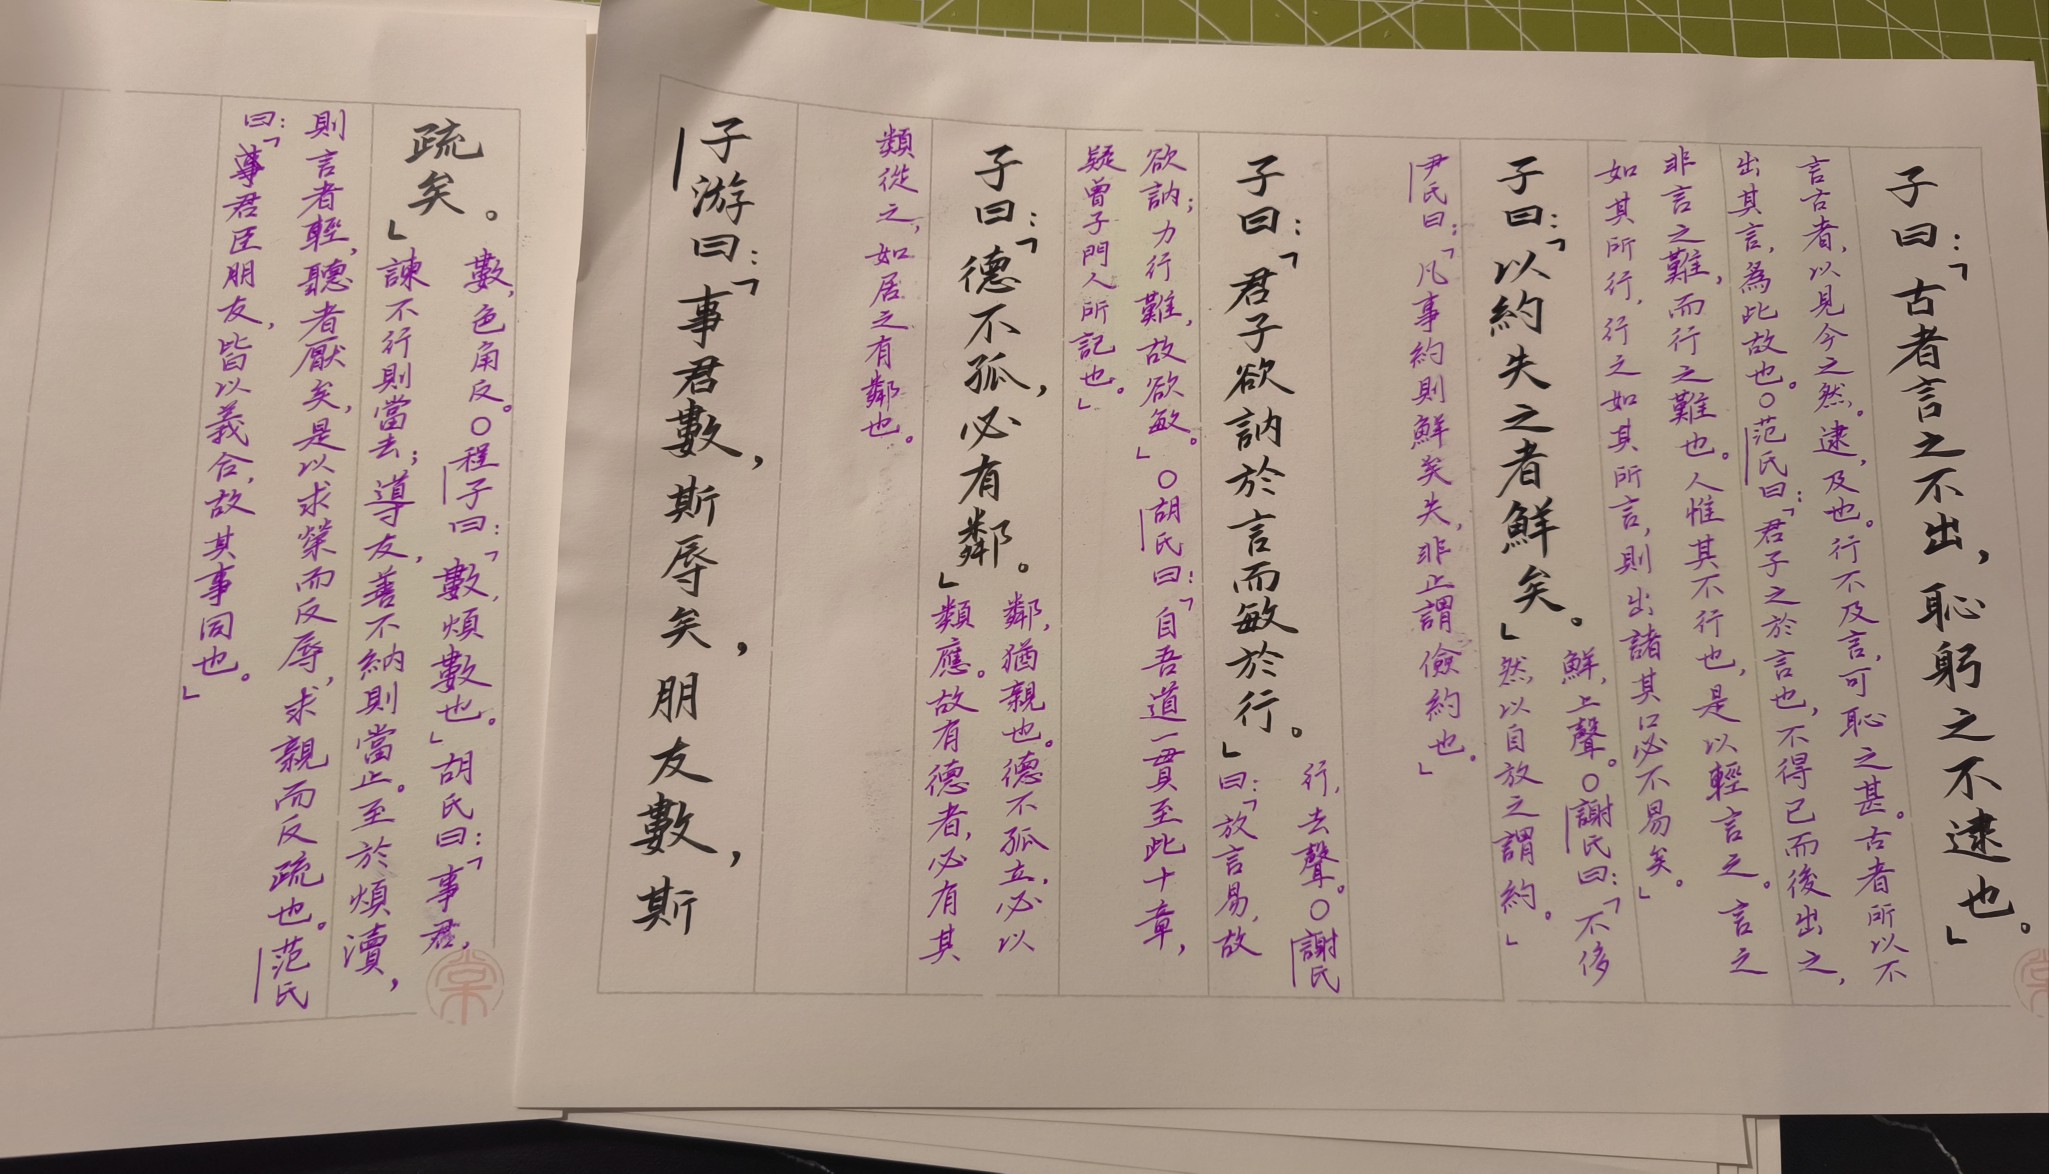 子曰：「古者言之不出，恥躬之不逮也。」
言古者，以見今之然。逮，及也。行不及言，可恥之甚。古者所以不
出其言，為此故也。○范氏曰：「君子之於言也，不得已而後出之，
非言之難，而行之難也。人惟其不行也，是以輕言之。言之
如其所行，行之如其所言，則出諸其口必不易矣。」
子曰：「以約失之者鮮矣。」
鮮，上聲。○謝氏曰：「不侈
然以自放之謂約。」
尹氏曰：「凡事約則鮮矣失，非止謂儉約也。」
子曰：「君子欲訥於言而敏於行。」
行，去聲。○謝氏
曰：「放言易，故
欲訥；力行難，故欲敏。」○胡氏曰：「自吾道一貫至此十章，
疑曾子門人所記也。」
子曰：「德不孤，必有鄰。」
鄰，猶親也。德不孤立，必以
類應。故有德者，必有其
類從之，如居之有鄰也。
子游曰：「事君數，斯辱矣，朋友數，斯
疏矣。」
數，色角反。○程子曰：「數，煩數也。」胡氏曰：「事君，
諫不行則當去；導友，善不納則當止。至於煩瀆，
則言者輕，聽者厭矣，是以求榮而反辱，求親而反疏也。范氏
曰：「事君臣朋友，皆以義合，故其事同也。」